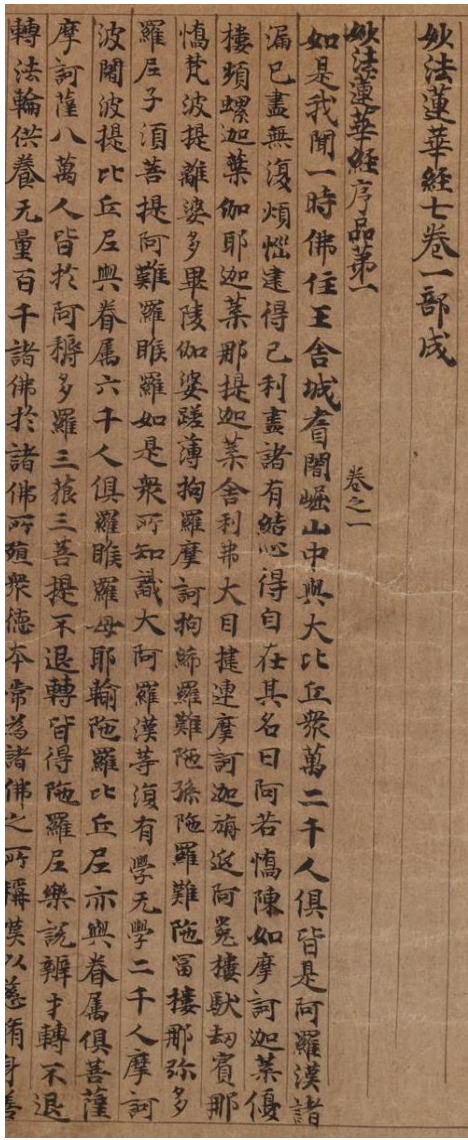 妙法蓮華經七卷一部成
妙法蓮華經序品第一　卷之一
如是我聞一時佛住王舍城耆闍崛山中與大比丘衆萬二千人俱皆是阿羅漢諸
漏已盡無復煩惱逮得己利盡諸有結心得自在其名曰阿若憍陳如摩訶迦葉優
樓頻螺迦葉伽耶迦葉那提迦葉舍利弗大目揵連摩訶迦旃延阿㝹樓馱劫賓那
憍梵波提離婆多畢陵伽婆蹉薄拘羅摩訶拘絺羅難陁孫陁羅難陁冨樓那弥多
羅尼子湏菩提阿難羅睺羅如是衆所知識大阿羅漢等復有學无學二千人摩訶
波闍波提比丘尼與眷属六千人俱羅睺羅母耶輸陁羅比丘尼亦與眷属俱菩薩
摩訶薩八萬人皆於阿耨多羅三藐三菩提不退轉皆得陁羅尼樂説辨才轉不退
轉法輪供養无量百千諸佛於諸佛所殖衆德本常為諸佛之所稱